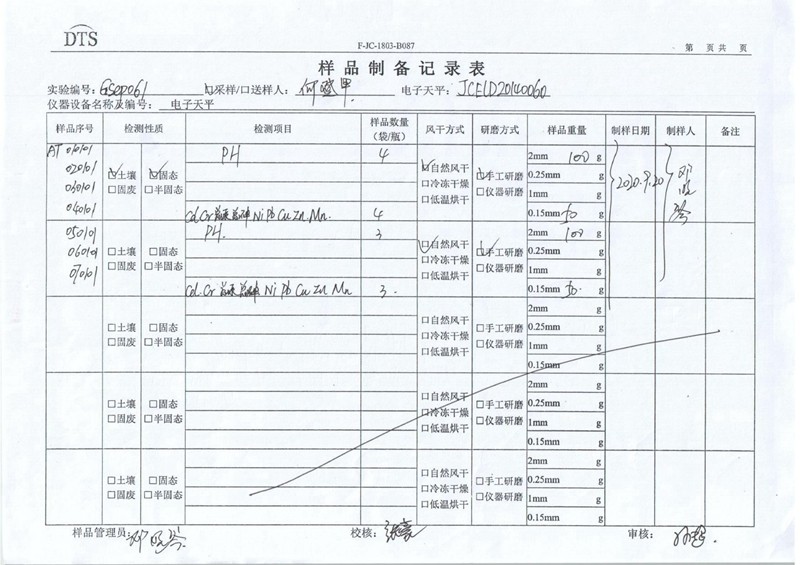 DTS
F-JC-1803-B087
第 页 共 页
样品制备记录表
实验编号: GSep061 口采样/口送样人: 何 甲 电子天平: JCELD20140060
仪器设备名称及编号: 电子天平
样品序号 检测性质 检测项目 样品数量(袋/瓶) 风干方式 研磨方式 样品重量 制样日期 制样人 备注
AT 010101 PH 4 2mm 100 g
020101 ☑土壤 ☑固态 ☑自然风干 ☑手工研磨 0.25mm g 2020.9.20
030101 □固废 □半固态 □冷冻干燥 □仪器研磨 1mm g
040101 □低温烘干
Cd Cr 总汞 总砷 Ni Pb Cu Zn Mn. 4 0.15mm 50 g
050101 PH. 3 2mm 100 g
060101 □土壤 □固态 ☑自然风干 ☑手工研磨 0.25mm g
070101 □固废 □半固态 □冷冻干燥 □仪器研磨 1mm g
□低温烘干
Cd. Cr 总汞 总砷 Ni Pb Cu Zn Mn 3. 0.15mm 50. g
2mm g
□土壤 □固态 □自然风干 □手工研磨 0.25mm g
□固废 □半固态 □冷冻干燥 □仪器研磨 1mm g
□低温烘干 0.15mm g
2mm g
□土壤 □固态 □自然风干 □手工研磨 0.25mm g
□固废 □半固态 □冷冻干燥 □仪器研磨 1mm g
□低温烘干 0.15mm g
2mm g
□土壤 □固态 □自然风干 □手工研磨 0.25mm g
□固废 □半固态 □冷冻干燥 □仪器研磨 1mm g
□低温烘干 0.15mm g
样品管理员: 校核: 审核: